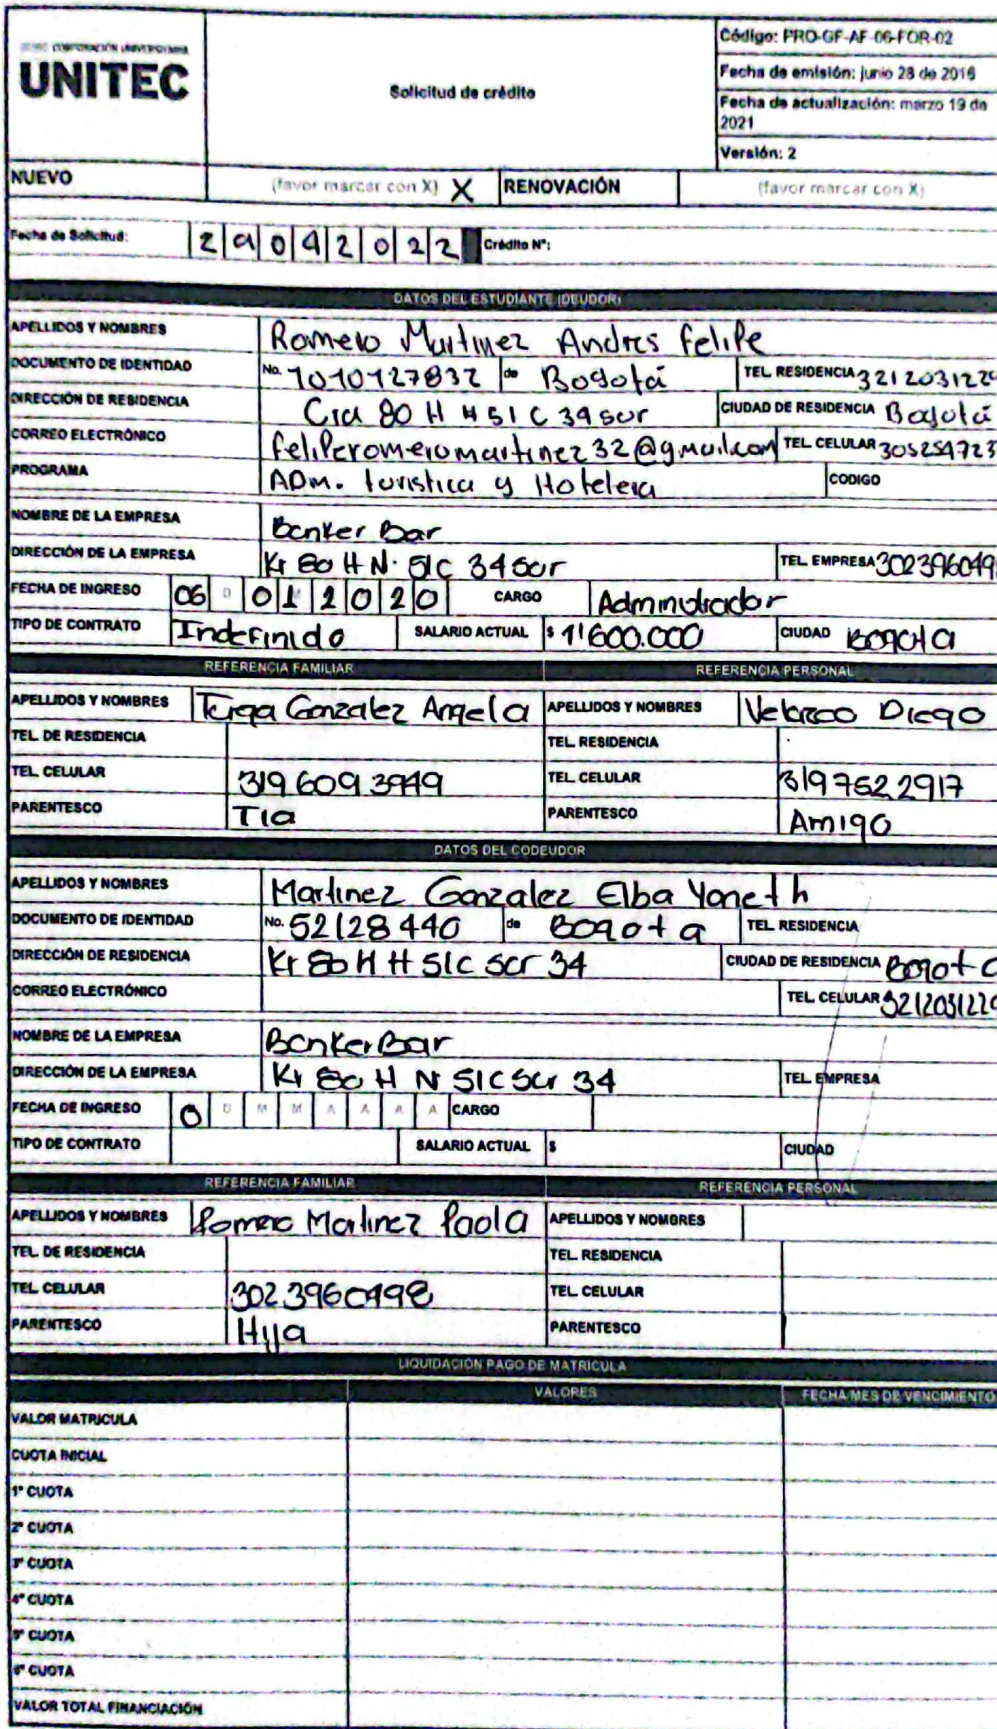 CORPORACIÓN UNIVERSITARIA
UNITEC
Solicitud de crédito
Código: PRO-GF-AF-06-FOR-02
Fecha de emisión: junio 28 de 2016
Fecha de actualización: marzo 19 de 2021
Versión: 2
NUEVO (favor marcar con X) X RENOVACIÓN (favor marcar con X)
Fecha de Solicitud: 29042022 Crédito N°:
DATOS DEL ESTUDIANTE (DEUDOR)
APELLIDOS Y NOMBRES Romero Martinez Andres Felipe
DOCUMENTO DE IDENTIDAD No. 1010127832 de Bogotá TEL. RESIDENCIA 321203122
DIRECCIÓN DE RESIDENCIA Cra 80 H # 51 C 34 sur CIUDAD DE RESIDENCIA Bogotá
CORREO ELECTRÓNICO feliperomeromartinez32@gmail.com TEL. CELULAR 305259723
PROGRAMA ADm. turistica y Hotelera CODIGO
NOMBRE DE LA EMPRESA Banker Bar
DIRECCIÓN DE LA EMPRESA Kr 80 H N. 51C 34 Sur TEL. EMPRESA 302396049
FECHA DE INGRESO 06 D 01 2020 CARGO Administrador
TIPO DE CONTRATO Indefinido SALARIO ACTUAL $ 1'600.000 CIUDAD Bogota
REFERENCIA FAMILIAR REFERENCIA PERSONAL
APELLIDOS Y NOMBRES Gonzalez Angela APELLIDOS Y NOMBRES Velazco Diego
TEL. DE RESIDENCIA TEL. RESIDENCIA
TEL. CELULAR 319 609 3949 TEL. CELULAR 319 752 2917
PARENTESCO Tia PARENTESCO Amigo
DATOS DEL CODEUDOR
APELLIDOS Y NOMBRES Martinez Gonzalez Elba Yaneth
DOCUMENTO DE IDENTIDAD No. 52128440 de Bogota TEL. RESIDENCIA
DIRECCIÓN DE RESIDENCIA Kr 80 H # 51C sur 34 CIUDAD DE RESIDENCIA Bogota
CORREO ELECTRÓNICO TEL. CELULAR 321203122
NOMBRE DE LA EMPRESA Banker Bar
DIRECCIÓN DE LA EMPRESA Kr 80 H N 51C Sur 34 TEL. EMPRESA
FECHA DE INGRESO 0 D M M A A A A CARGO
TIPO DE CONTRATO SALARIO ACTUAL $ CIUDAD
REFERENCIA FAMILIAR REFERENCIA PERSONAL
APELLIDOS Y NOMBRES Romero Martinez Paola APELLIDOS Y NOMBRES
TEL. DE RESIDENCIA TEL. RESIDENCIA
TEL. CELULAR 302 3960498 TEL. CELULAR
PARENTESCO Hija PARENTESCO
LIQUIDACIÓN PAGO DE MATRICULA
VALORES FECHA/MES DE VENCIMIENTO
VALOR MATRICULA
CUOTA INICIAL
1ª CUOTA
2ª CUOTA
3ª CUOTA
4ª CUOTA
5ª CUOTA
6ª CUOTA
VALOR TOTAL FINANCIACIÓN